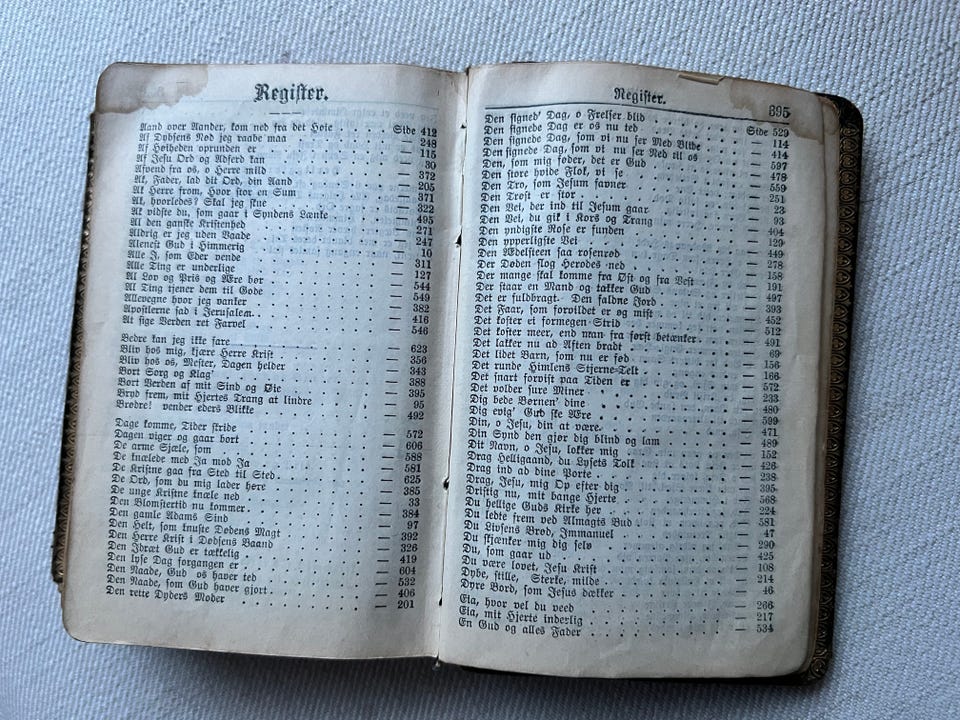 Register.
Aand over Aander, kom ned fra det Høie Side 412
Af Dybsens Nød jeg raabe maa — 248
Af Høiheden oprunden er — 115
Af Jesu Ord og Adfærd kan — 30
Afvend fra os, o Herre mild — 372
Ak, Fader, lad dit Ord, din Aand — 205
Ak Herre from, Hvor stor en Sum — 371
Ak, hvorledes? Skal jeg slue — 322
Ak vidste du, som gaar i Syndens Lænke — 495
Al den ganske Kristenhed — 271
Aldrig er jeg uden Vaade — 247
Alenest Gud i Himmerig — 10
Alle I, som Eder vende — 311
Alle Ting er underlige — 127
Al Lov og Pris og Ære bør — 544
Al Ting tjener dem til Gode — 549
Allevegne hvor jeg vanker — 382
Apostlerne sad i Jerusalem — 416
At sige Verden ret Farvel — 546
Bedre kan jeg ikke fare — 623
Bliv hos mig, kjære Herre Krist — 356
Bliv hos os, Mester, Dagen helder — 343
Bort Sorg og Klag' — 388
Bort Verden af mit Sind og Øie — 395
Bryd frem, mit Hjertes Trang at lindre — 95
Brødre! vender eders Blikke — 492
Dage komme, Tider stride — 572
Dagen viger og gaar bort — 606
De arme Sjæle, som — 588
De knælede med Ja mod Ja — 581
De Kristne gaa fra Sted til Sted — 625
De Ord, som du mig lader høre — 385
De unge Kristne knæle ned — 33
Den Blomstertid nu kommer — 384
Den gamle Adams Sind — 97
Den Helt, som knuste Dødens Magt — 392
Den Herre Krist i Dødsens Baand — 326
Den Idræt Gud er tækkelig — 419
Den lyse Dag forgangen er — 604
Den Naade, Gud os haver ted — 532
Den Naade, som Gud haver gjort — 406
Den rette Dyders Moder — 201
Register. 895
Den signed' Dag, o Frelser blid Side 529
Den signede Dag er os nu ted — 114
Den signede Dag, som vi nu ser Med Blide — 414
Den signede Dag, som vi nu ser Ned til os — 597
Den, som mig føder, det er Gud — 478
Den store hvide Flok, vi se — 559
Den Tro, som Jesum favner — 251
Den Trøst er stor — 23
Den Vei, der ind til Jesum gaar — 93
Den Vei, du gik i Kors og Trang — 404
Den yndigste Rose er funden — 129
Den ypperligste Vei — 449
Den Ædelsteen saa rosenrød — 278
Der Døden slog Herodes ned — 158
Der mange skal komme fra Øst og fra Vest — 191
Der staar en Mand og takker Gud — 497
Det er fuldbragt. Den faldne Jord — 393
Det Faar, som forvildet er og mist — 452
Det koster ei formegen Strid — 512
Det koster meer, end man fra først betænker — 491
Det lakker nu ad Aften bradt — 69
Det lidet Barn, som nu er fød — 156
Det runde Himlens Stjerne-Telt — 166
Det snart forvist paa Tiden er — 572
Det volder sure Miner — 233
Dig bede Børnen' dine — 480
Dig evig' Gud ske Ære — 599
Din, o Jesu, din at være — 471
Din Synd den gjør dig blind og lam — 489
Dit Navn, o Jesu, lokker mig — 152
Drag Helligaand, du Lysets Tolk — 426
Drag ind ad dine Porte — 238
Drag, Jesu, mig Op efter dig — 395
Driftig nu, mit bange Hjerte — 568
Du hellige Guds Kirke her — 224
Du ledte frem ved Almagts Bud — 581
Du Livsens Brød, Immanuel — 47
Du skjænker mig dig selv — 290
Du, som gaar ud — 425
Du være lovet, Jesu Krist — 108
Dybe, stille, Stærke, milde — 214
Dyre Bord, som Jesus dækker — 46
Eia, hvor vel du veed — 266
Eia, mit Hjerte inderlig — 217
En Gud og alles Fader — 534